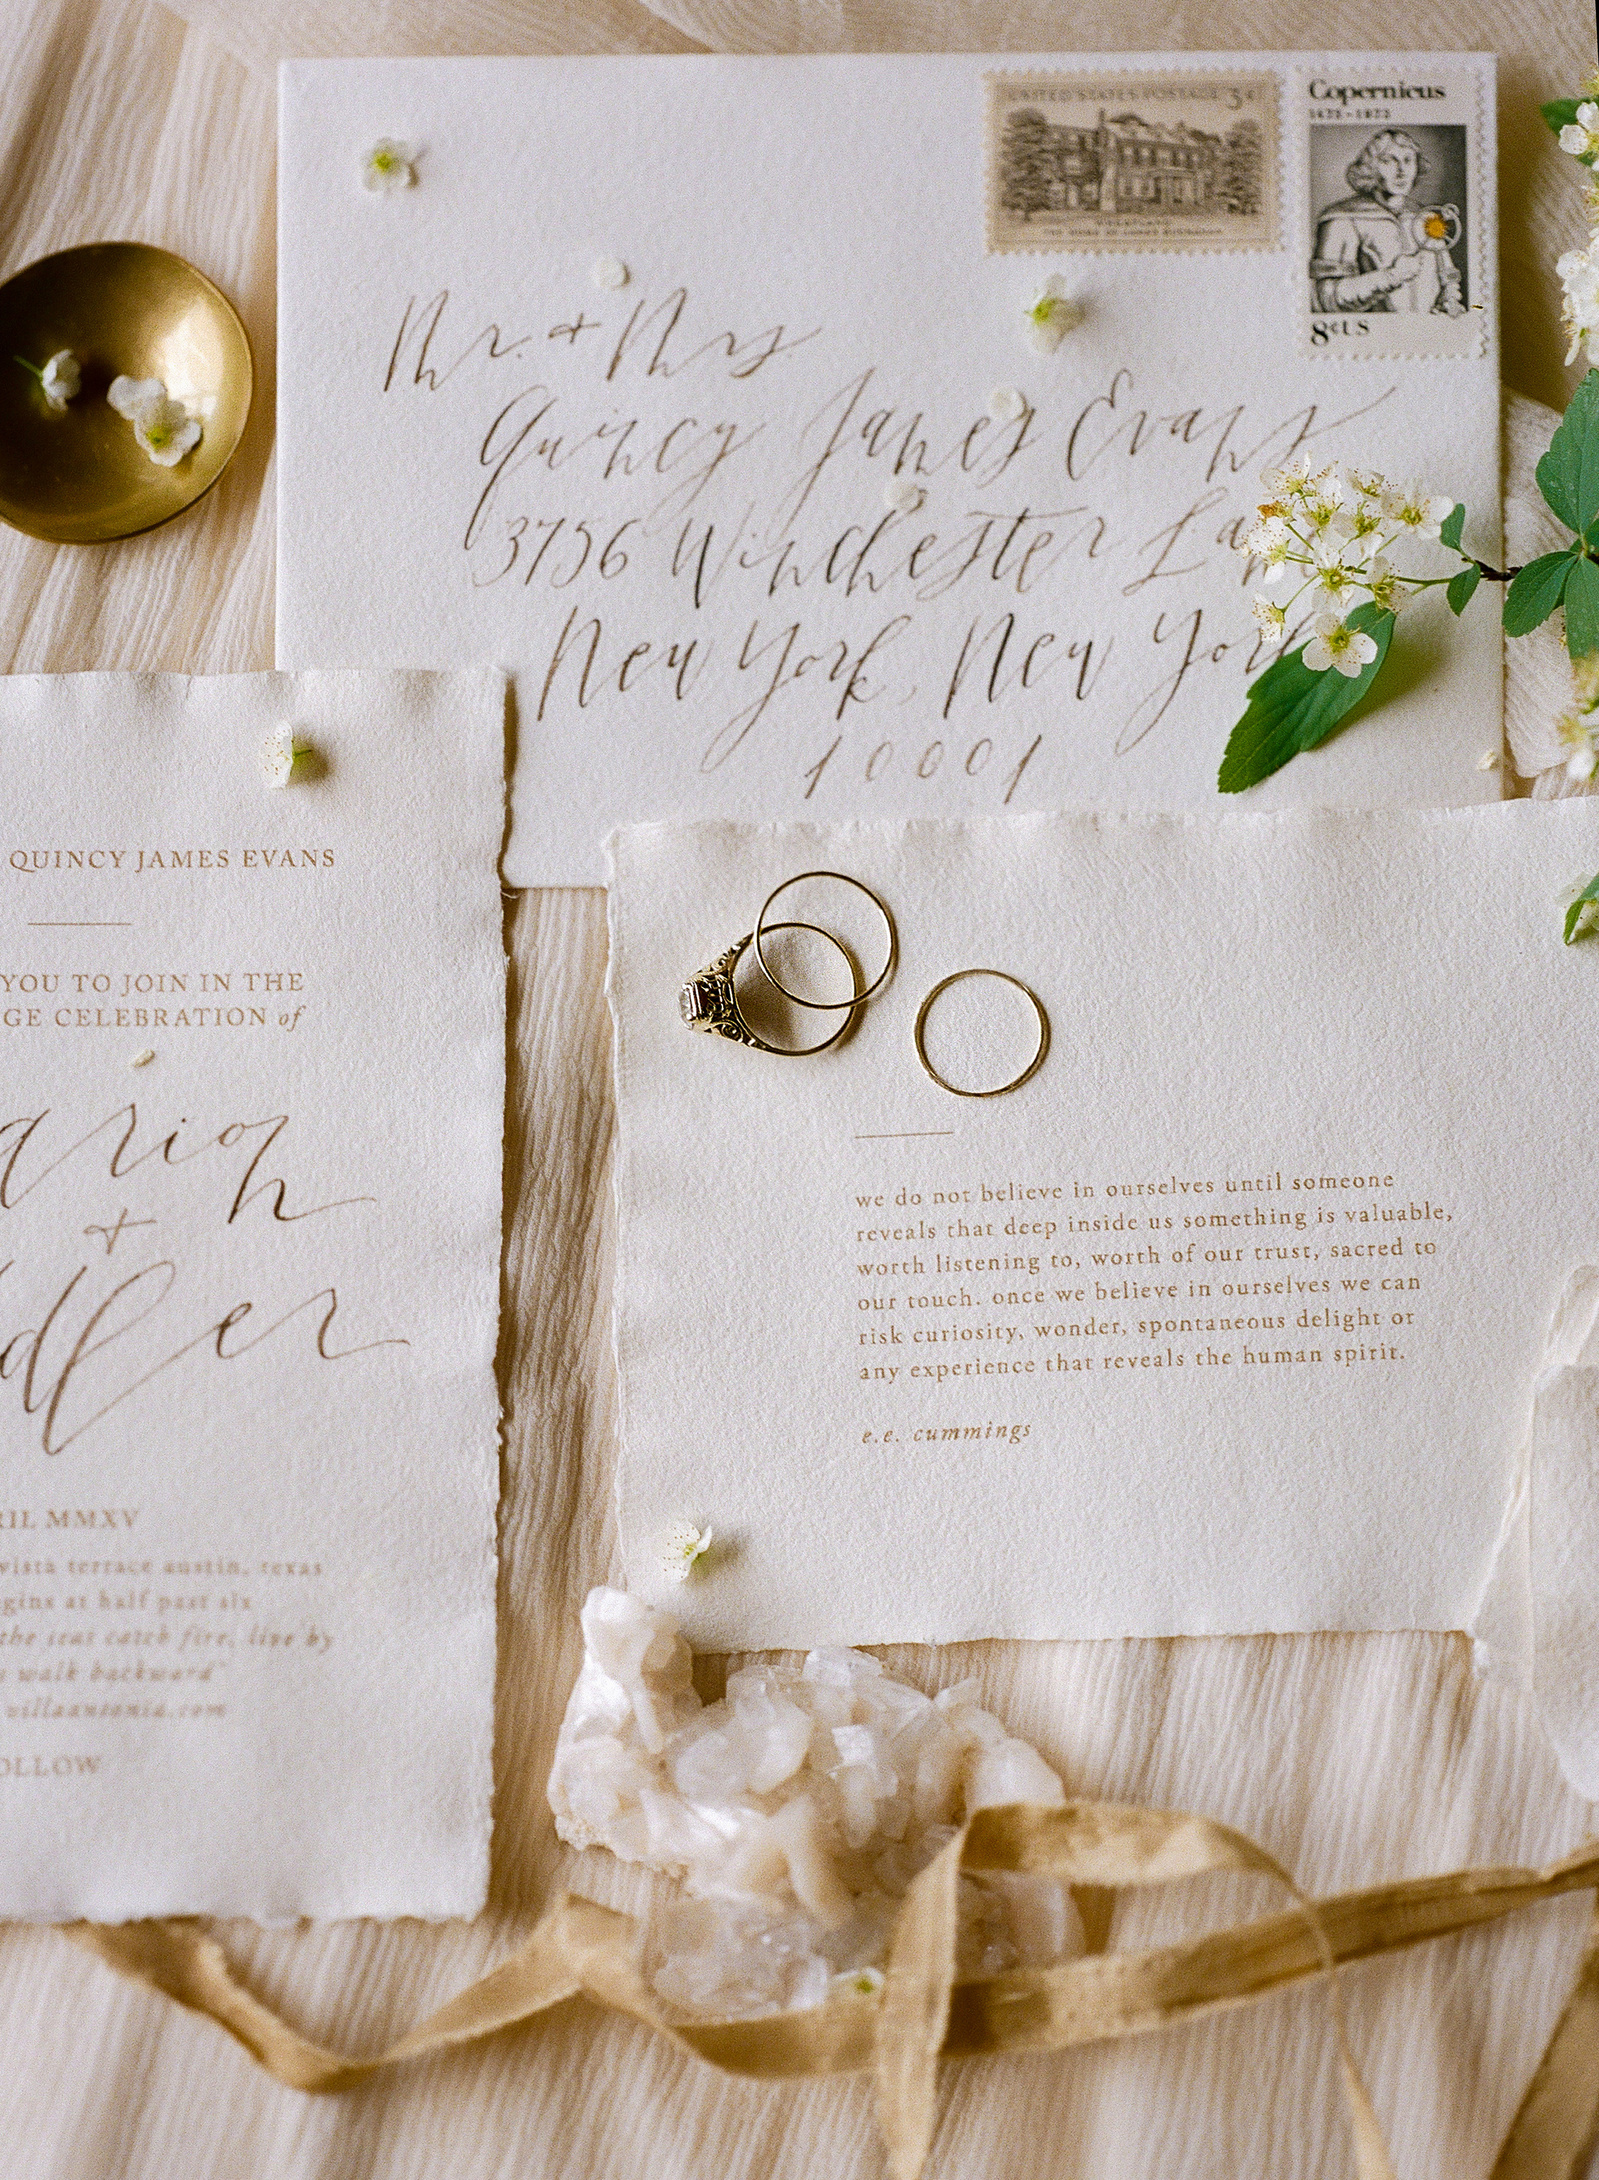 UNITED STATES POSTAGE 3¢
WHEATLAND
THE HOME OF JAMES BUCHANAN
Copernicus
1473-1973
8¢US
Mr. + Mrs.
Quincy James Evans
3756 Winchester
New York, New York
10001
QUINCY JAMES EVANS
YOU TO JOIN IN THE
GE CELEBRATION of
arion
+
dler
RIL MMXV
vista terrace austin, texas
gins at half past six
the seat catch fire, live by
walk backward"
villaantonia.com
OLLOW
we do not believe in ourselves until someone
reveals that deep inside us something is valuable,
worth listening to, worth of our trust, sacred to
our touch. once we believe in ourselves we can
risk curiosity, wonder, spontaneous delight or
any experience that reveals the human spirit.
e.e. cummings